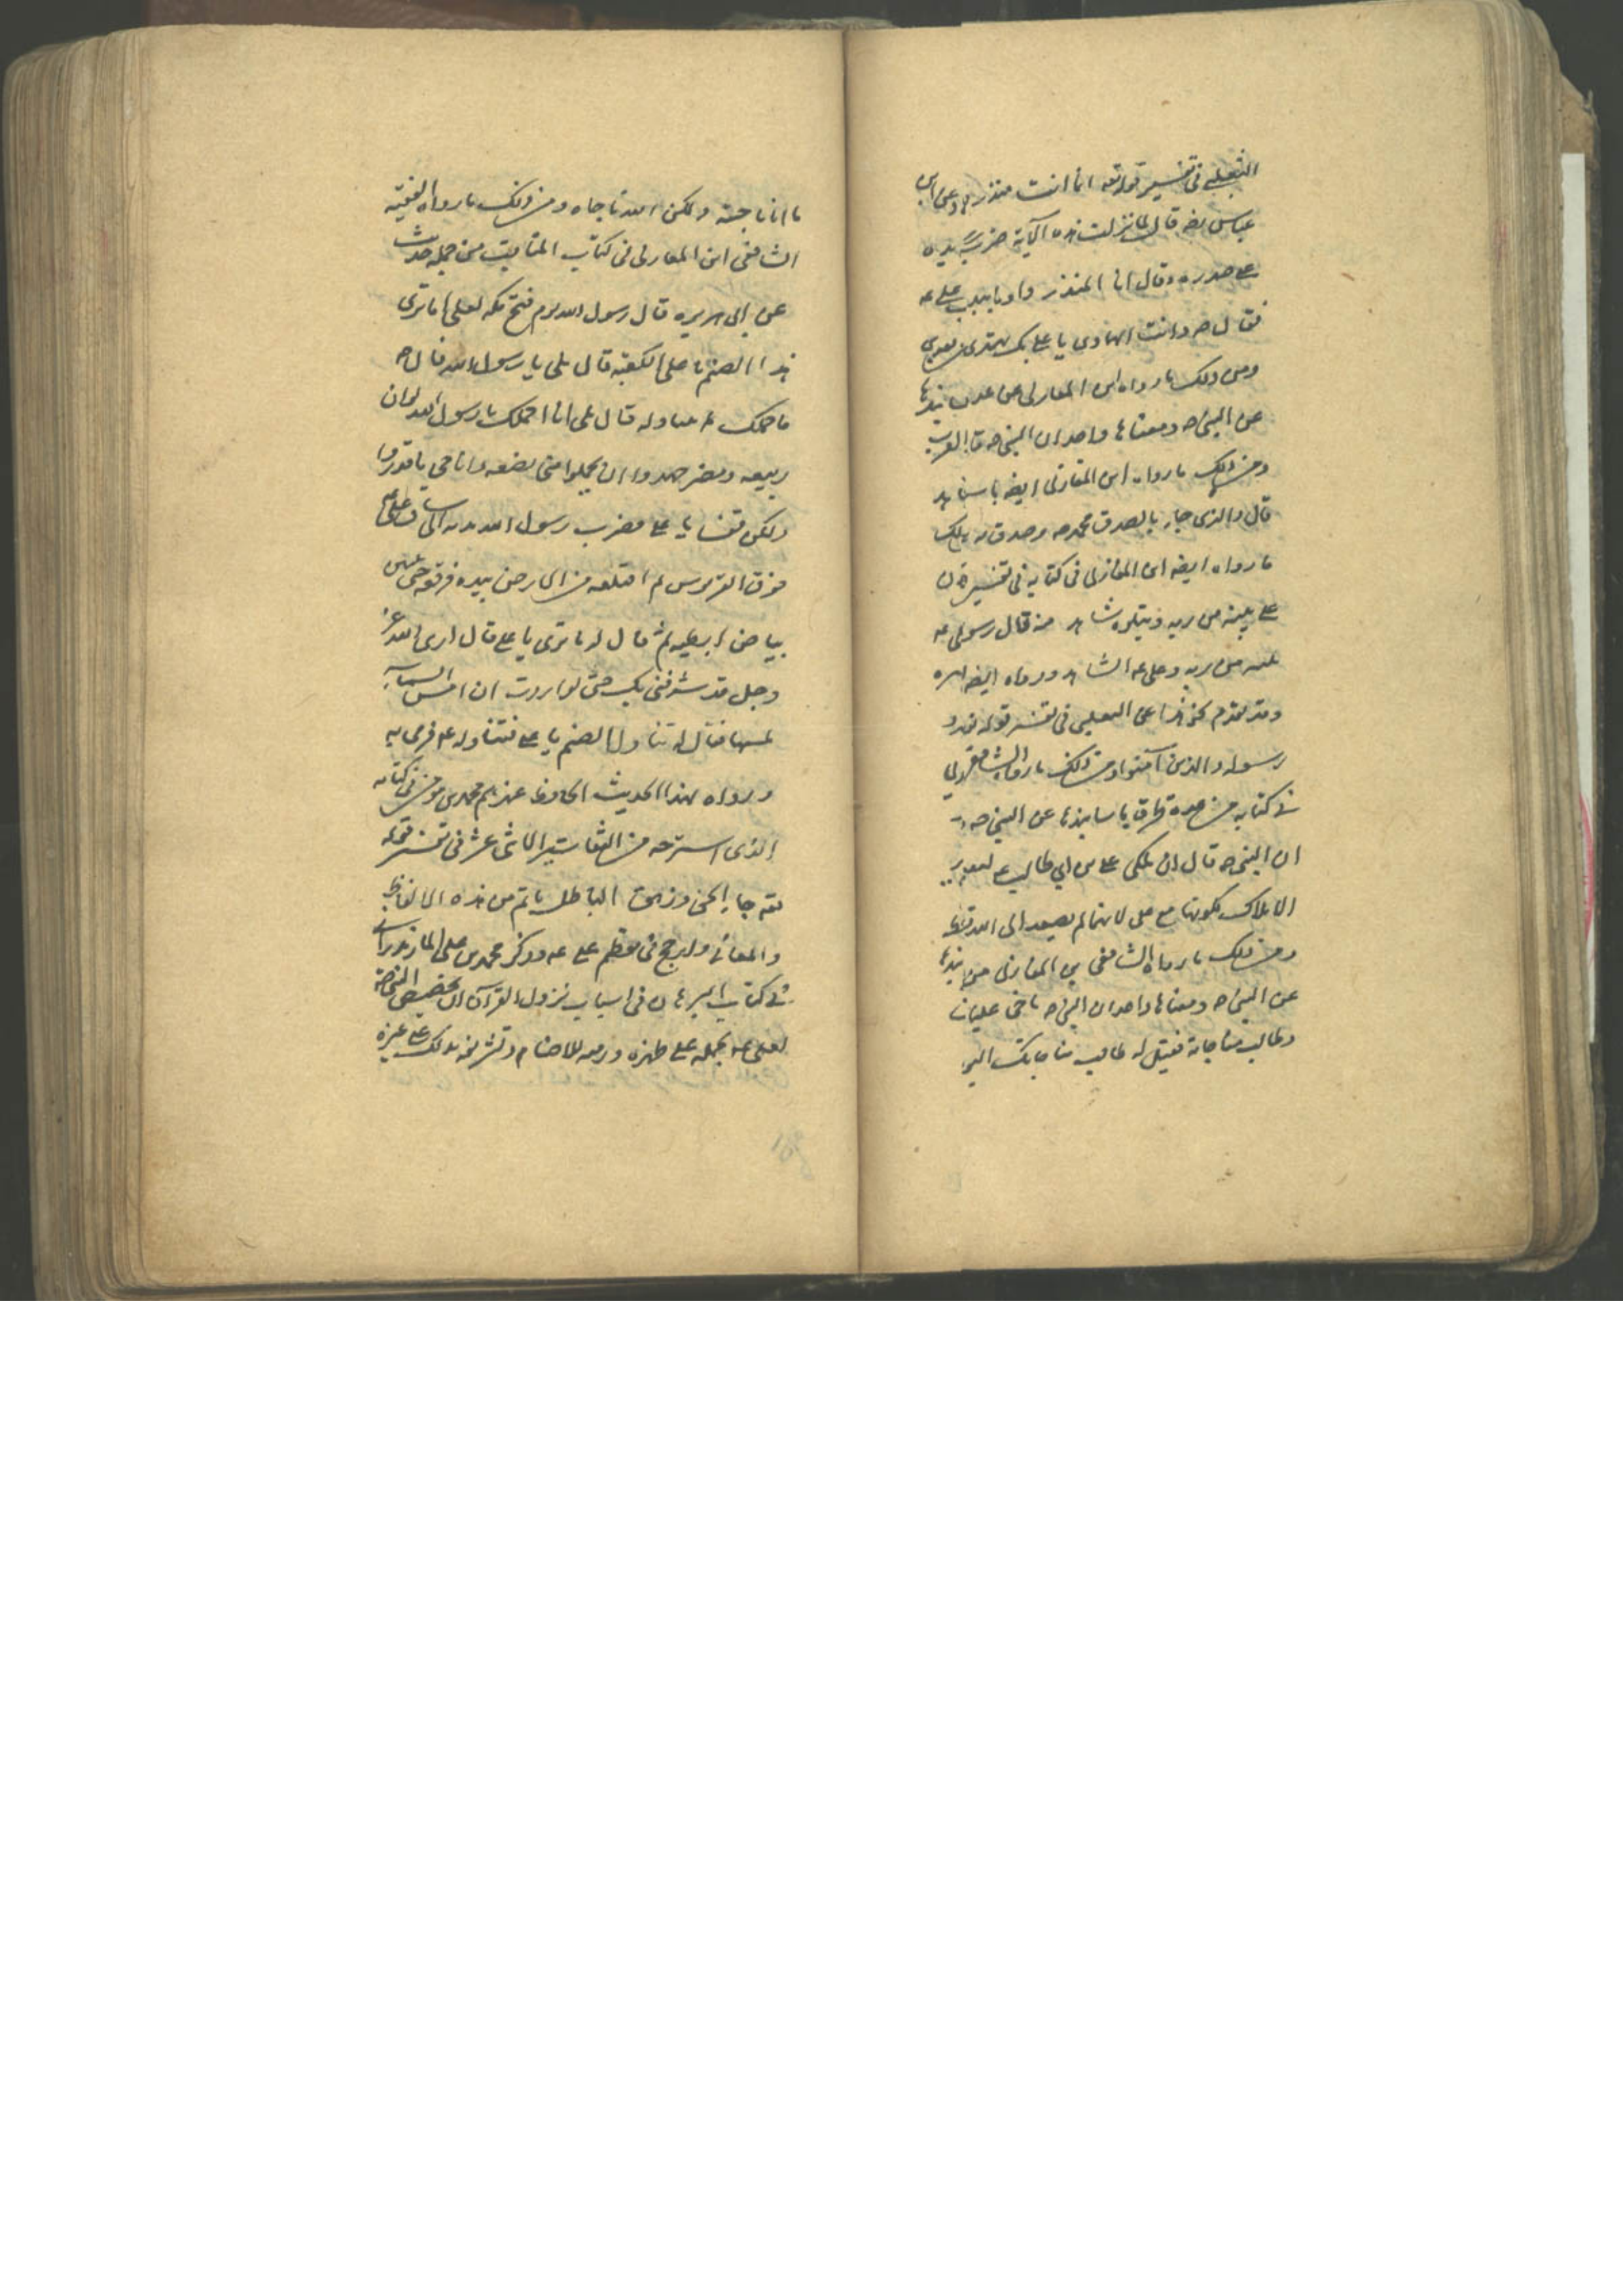 الثعلبي في تفسير قوله تعه انما انت منذر ولكل عن ابن
عباس رضه قال لما نزلت هذه الآية ضرب ص يده
على صدره وقال انا المنذر واومأ بيده على ع
فقال ص وانت الهادى يا على بك يهتدى من بعدى
ومن ذلك ما رواه ابن المغازلى من عدة اسانيدها
عن النبى ص ومعناها واحد ان النبى ص
ومن ذلك ما رواه ابن المغازلى ايضه باسناده
قال والذى جاء بالصدق محمد ص وصدق به
ما رواه ايضه ابن المغازلى فى كتابه فى تفسير
على بينة من ربه ويتلوه شاهد منه قال رسول
بينة من ربه وعلى ع الشاهد ورواه ايضه
وقد تقدم نحو هذا عن الثعلبى فى تفسير قوله
رسوله والذين آمنوا ومن ذلك ما رواه الشافعى
فى كتابه من عدة طرق باسانيدها عن النبى ص
ان النبى ص قال ان ملكى على بن ابي طالب ع
الاملاك بكونها مع على لانهما لم يصعدا الى الله قط
ومن ذلك ما رواه الشافعى بن المغازلى من
عن النبى ص ومعناها واحد ان النبى ص ناجى عليا
وطالب مناجاته فقيل له طالب مناجاتك اليوم
ما انا ناجيته ولكن الله ناجاه ومن ذلك ما رواه الفقيه
الشافعى ابن المغازلى فى كتاب المناقب من جملة حديث
عن ابى هريره قال رسول الله يوم فتح مكه لعلى اما ترى
هذا الصنم على الكعبة قال بلى يا رسول الله قال ص
فاحملك فتناوله قال بلى انا احملك يا رسول الله لو ان
ربيعه ومضر جهدوا ان يحملوا منى بضعه وانا حى ما قدروا
ولكن قف يا على فضرب رسول الله يده الى ساق على ع
فوق القربوس ثم اقتلعه من الارض بيده فرفعه حتى تبين
بياض ابطيه ثم قال له ما ترى يا على قال ارى الله عز
وجل قد شرفنى بك حتى لو اردت ان امس السماء
لمسها فقال له تناول الصنم يا على فتناوله ع فرمى به
ورواه بهذا الحديث الحافظ عندهم محمد بن مومن فى كتابه
الذى استخرجه من التفاسير الاثنى عشر فى تفسير قوله
تعه جاء الحق وزهق الباطل باتم من هذه الالفاظ
والمعانى وارجح فى تعظيم على ع وذكر محمد بن على المازندرانى
فى كتاب البرهان فى اسباب نزول القرآن ان تخصيص النبى ص
لعلى ع بحمله على ظهره ورميه للاصنام وتشريفه بذلك على غيره